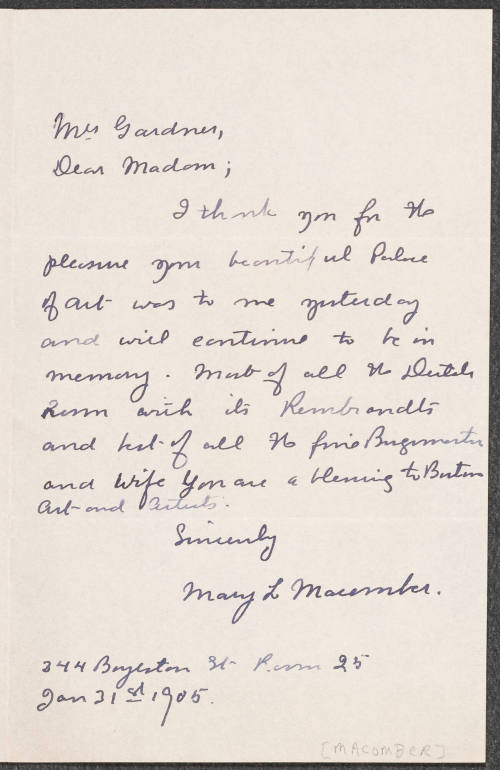 Mrs Gardner,
Dear Madam;
I thank you for the
pleasure your beautiful Palace
of art was to me yesterday
and will continue to be in
memory. Most of all the Dutch
Room with its Rembrandts
and best of all the fine Burgomaster
and Wife You are a blessing to Boston
art and artists.
Sincerely
Mary L Macomber.
344 Boylston St Room 25
Jan 31st 1905.
[MACOMBER]